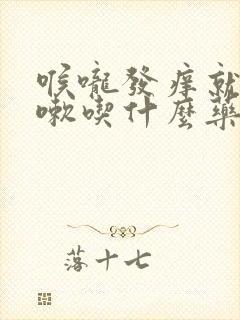 喉嚨發痒就
嗽喫什麼藥
落十七